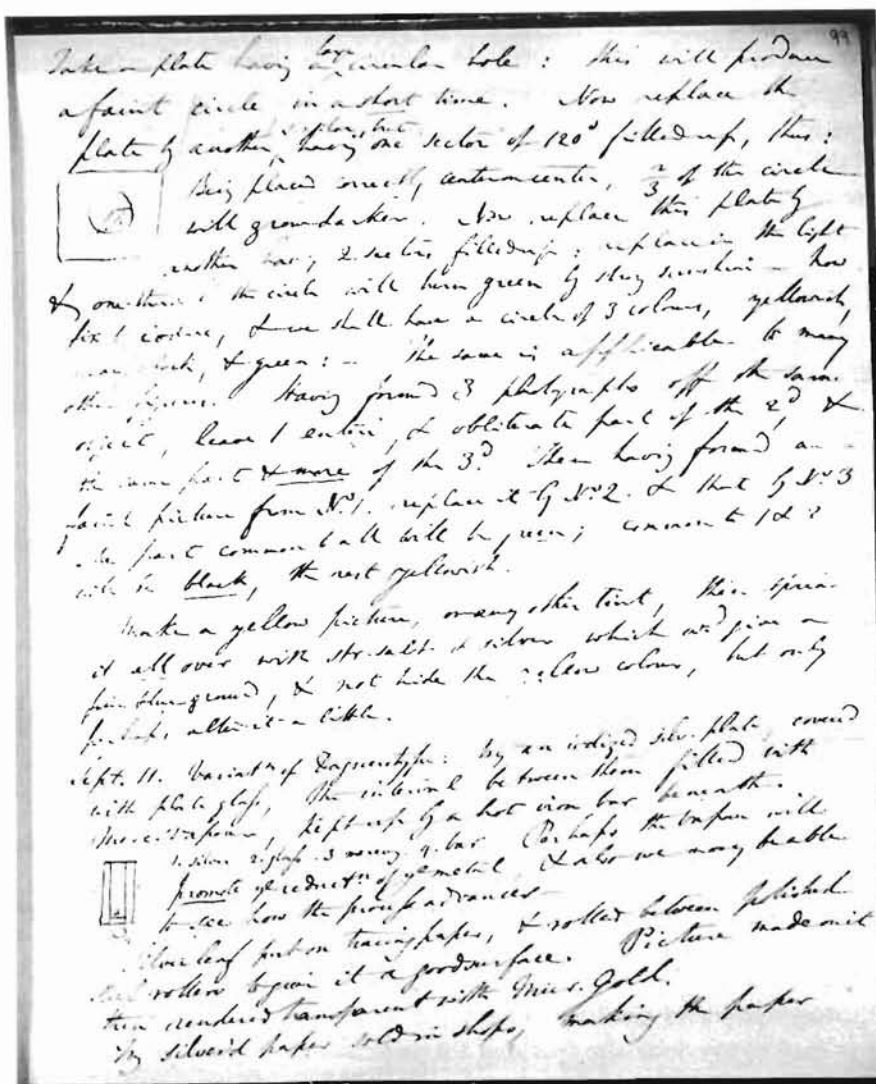 99
Take a plate having a large circular hole : this will produce
a faint circle in a short time. Now replace the
plate by another, similar, but having one sector of 120° filled up, thus :
Being placed correctly, center on center, 2/3 of the circle
will grow darker. Now replace this plate by
another having 2 sectors filled up ; replace in the light
& one third of the circle will turn green by strong sunshine – Now
fix t iodine, & we shall have a circle of 3 colours, yellowish,
black, & green : – The same is applicable to many
other figures. Having formed 3 photographs off the same
object, leave 1 entire, & obliterate part of the 2d, &
the same part & more of the 3d. Then having formed a
faint picture from No 1. replace it by No 2. & that by No 3
the part common to all will be green ; common to 1 & 2
will be black, the rest yellowish.
Make a yellow picture, or any other tint, then
it all over with str. salt & silver which wd give a
fine blue ground, & not hide the yellow colour, but only
perhaps alter it a little.
Sept. 11. Variatn of Daguerotype : Try an iodized silv. plate, covered
with plate glass, the interval between them filled with
Merc. vapour, kept up by a hot iron bar beneath.
1. silver 2. glass. 3 mercury. 4. bar Perhaps the vapour will
promote ye reductn of ye metal & also we may be able
to see how the process advances –
Silver leaf put on tracing paper, & rolled between polished
steel rollers to give it a good surface. Picture made on it
then rendered transparent with Mur. Gold.
Try silver'd paper sold in shops, making the paper